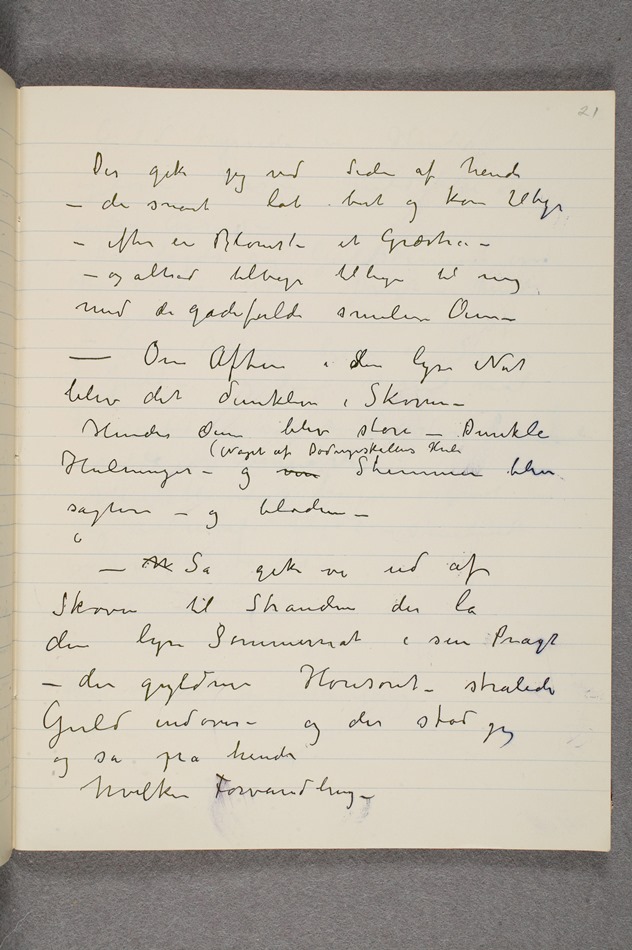 21
Der gik jeg ved Siden af hende
– der snart løb bort og kom tilbage
– efter en Blomst – et Græstrå –
– og altid tilbage tilbage til mig
med de gådefulde smilene Øine –
— Om Aften i den lyse Nat
blev det dunklere i Skoven –
Hendes Øine blev store – Dunkle
(Noget af Dødningeskallens Hule
Hulninger – og Stemmen blev
sagtere – og blødere –
– Så gik vi ud af
Skoven til Stranden der lå
den lyse Sommernat i sin Pragt
– den gyldene Horisont – strålede
Guld indover – og der stod jeg
og så på hende
Hvilken Forvandling –